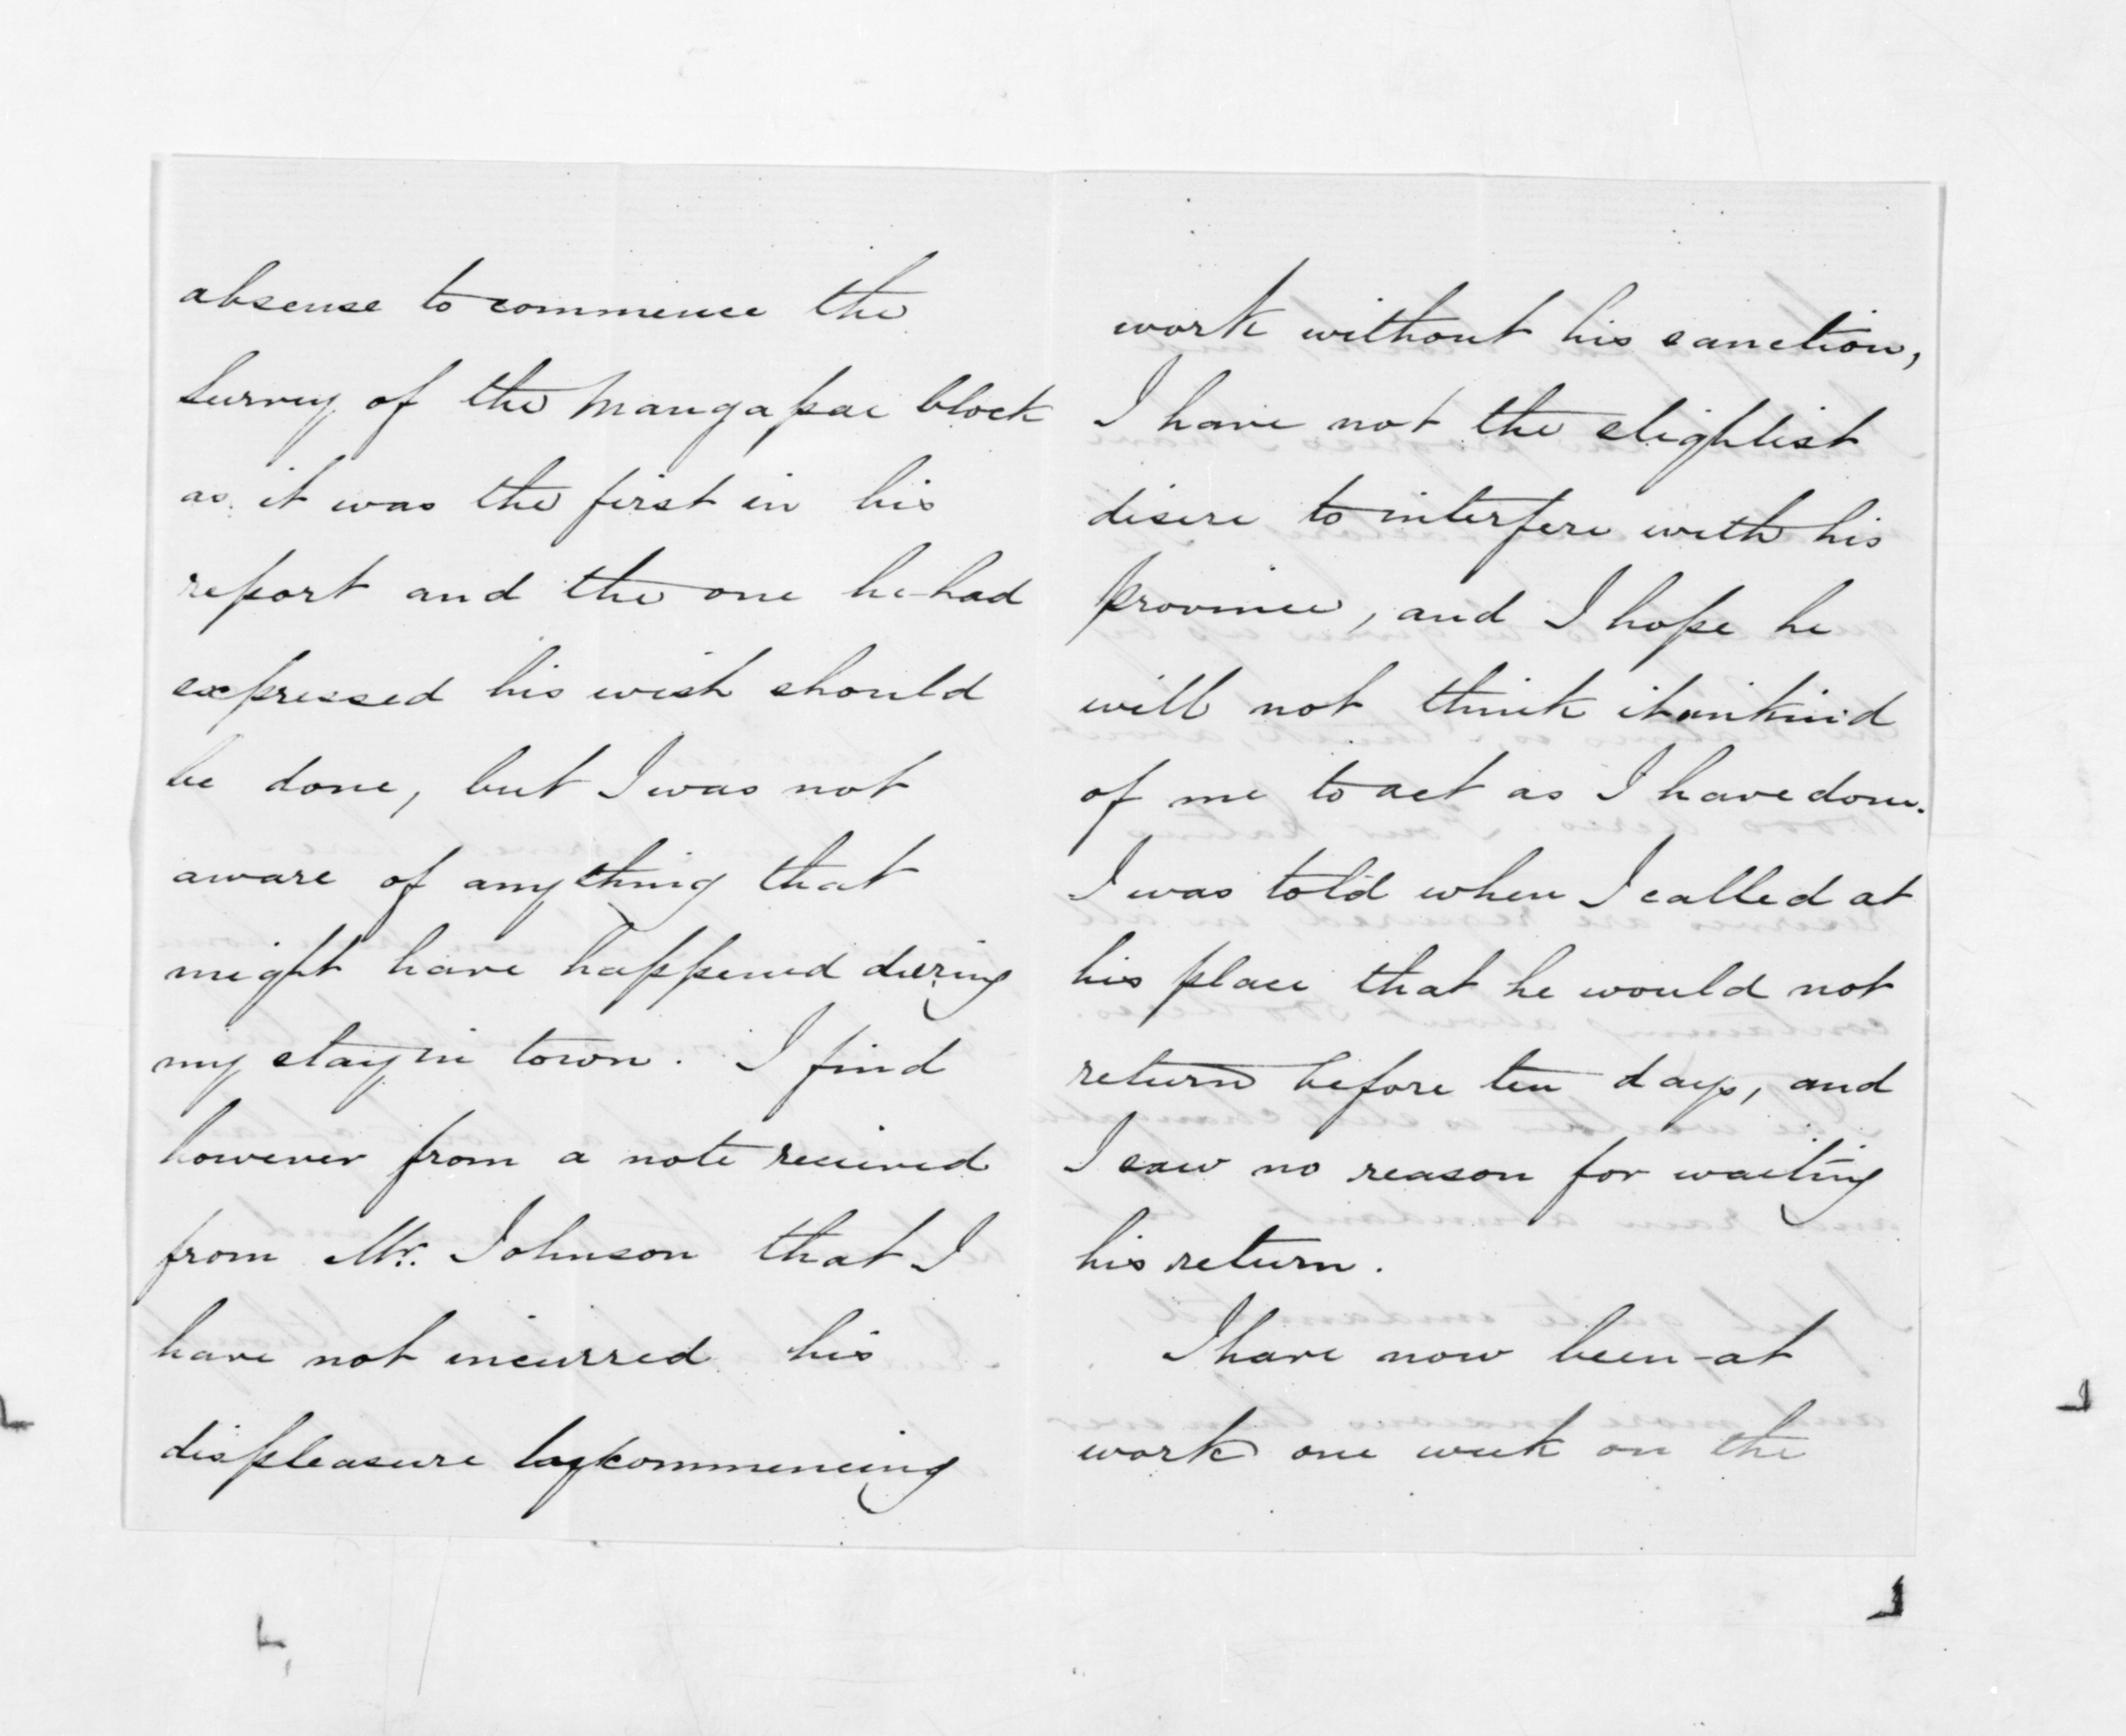 absense to commence the
Survey of the Mangapai block
as it was the first in his
report and the one he had
expressed his wish should
be done, but I was not
aware of anything that
might have happened during
my stay in town. I find
however from a note received
from Mr. Johnson that I
have not incurred his
displeasure by commencing
work without his sanction,
I have not the slightest
desire to interfere with his
province, and I hope he
will not think it unkind
of me to act as I have done.
I was told when I called at
his place that he would not
return before ten days, and
I saw no reason for waiting
his return.
I have now been at
work one week on the